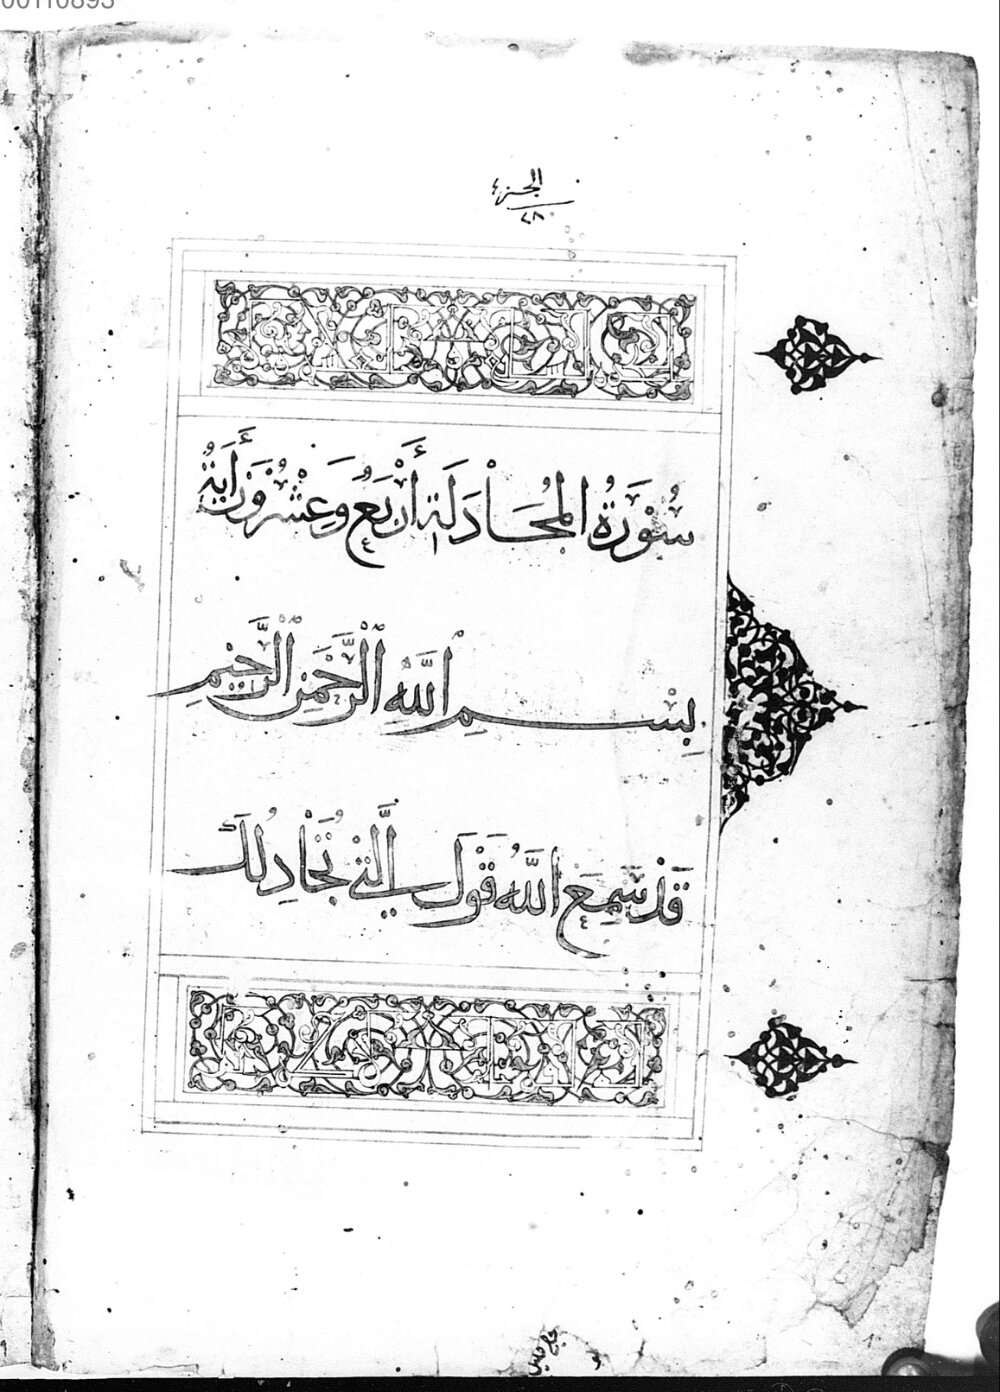 00110893
الجزء
٢٨
سُورَةُ الْمُجَادَلَةِ أَرْبَعُ وَعِشْرُونَ أَيَةً
بِسْمِ اللَّهِ الرَّحْمٰنِ الرَّحِيمِ
قَدْ سَمِعَ اللَّهُ قَوْلَ الَّتِي تُجَادِلُكَ